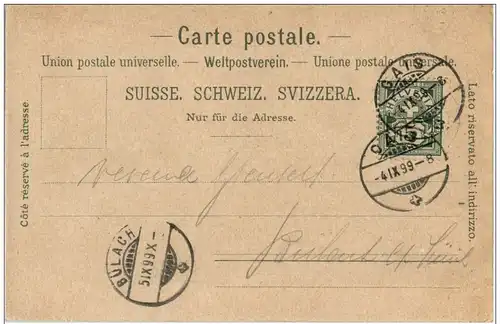 — Carte postale. —
Union postale universelle. — Weltpostverein. — Unione postale universale.
SUISSE. SCHWEIZ. SVIZZERA.
Nur für die Adresse.
Côté réservé à l'adresse.
Lato riservato all' indirizzo.
GAIS
GAIS
-4 IX 99-8
BÜLACH
5 IX 99 X-